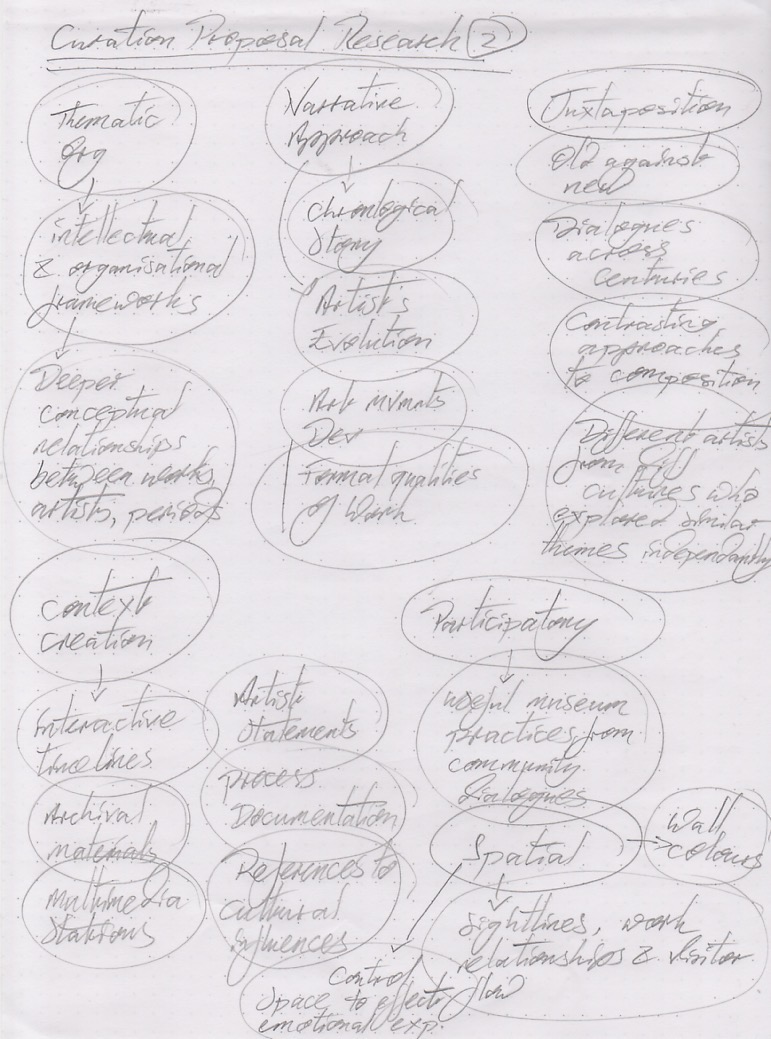 Curation Proposal Research 2
Thematic
Org
intellectual
& organisational
frameworks
Deeper
conceptual
relationships
between works,
artists, periods
Narrative
Approach
Chronlogical
Story
Artist's
Evolution
Art mvmnts
Dev
Formal qualities
of work
Juxtaposition
Old against
new
Dialogues
across
centuries
Contrasting
approaches
to composition
Different artists
from diff
cultures who
explored similar
themes independantly
Context
creation
Interactive
timelines
Archival
materials
Multimedia
Stations
Artist
Statements
process
Documentation
References to
Cultural
influences
Participatory
useful museum
practices from
community
dialogues
Spatial
Wall
colours
Sightlines, work
relationships & visitor
flow
Control
Space to effect
emotional exp.